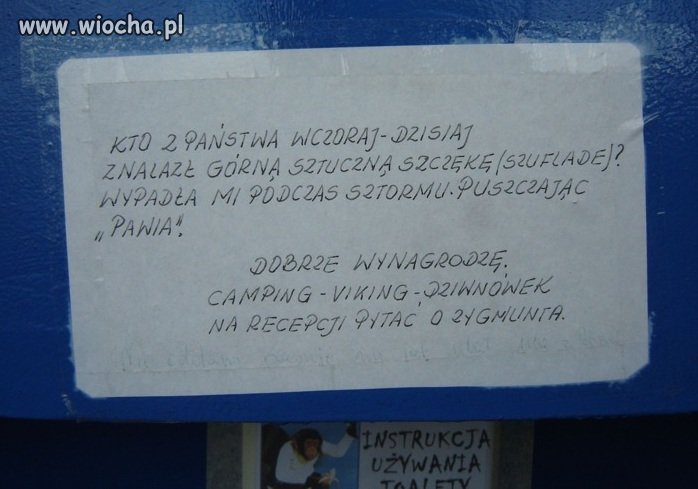 www.wiocha.pl
KTO Z PAŃSTWA WCZORAJ-DZISIAJ
ZNALAZŁ GÓRNĄ SZTUCZNĄ SZCZĘKĘ (SZUFLADE)?
WYPADŁA MI PODCZAS SZTORMU. PUSZCZAJĄC
„PAWIA”.
DOBRZE WYNAGRODZĘ.
CAMPING-VIKING-DZIWNÓWEK
NA RECEPCJI PYTAĆ O ZYGMUNTA.
INSTRUKCJA
UŻYWANIA
TOALETY